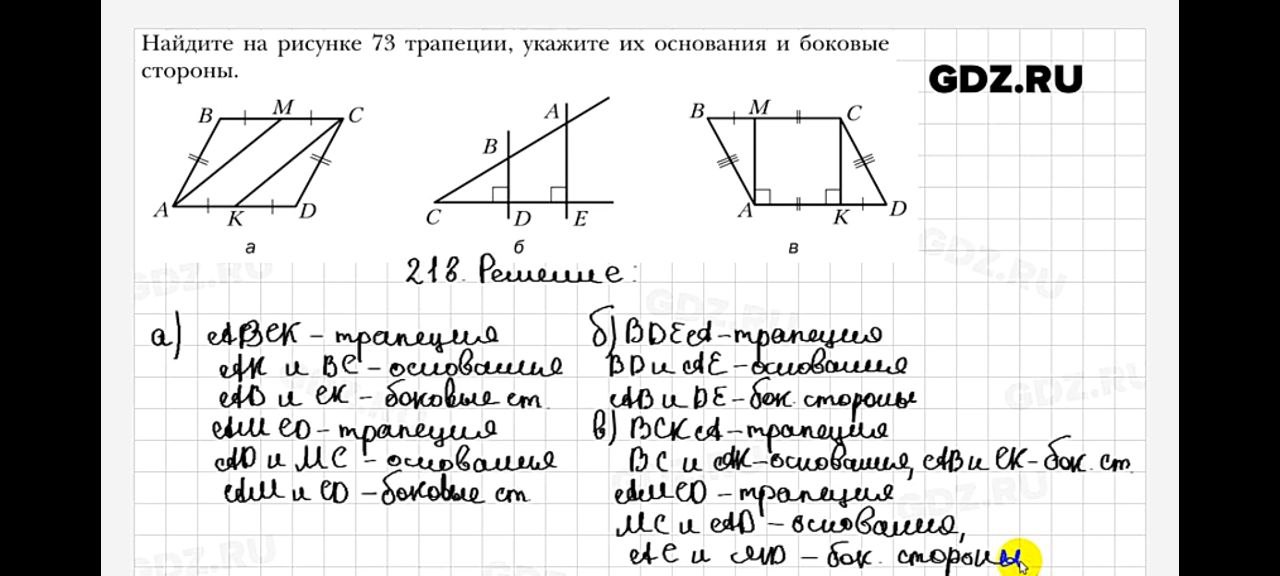 Найдите на рисунке 73 трапеции, укажите их основания и боковые
стороны.
GDZ.RU
B M C
A K D
а
A
B
C D E
б
B M C
A K D
в
218. Решение:
а) ABCK - трапеция
AK и BC - основания
AB и CK - боковые ст.
AMCD - трапеция
AD и MC - основания
AM и CD - боковые ст.
б) BDEA - трапеция
BD и AE - основания
AB и DE - бок. стороны
в) BCKA - трапеция
BC и AK - основания, AB и CK - бок. ст.
AMCD - трапеция
MC и AD - основания,
AC и MD - бок. стороны
GDZ.RU
GDZ.RU
GDZ.RU
GDZ.RU
GDZ.RU
GDZ.RU